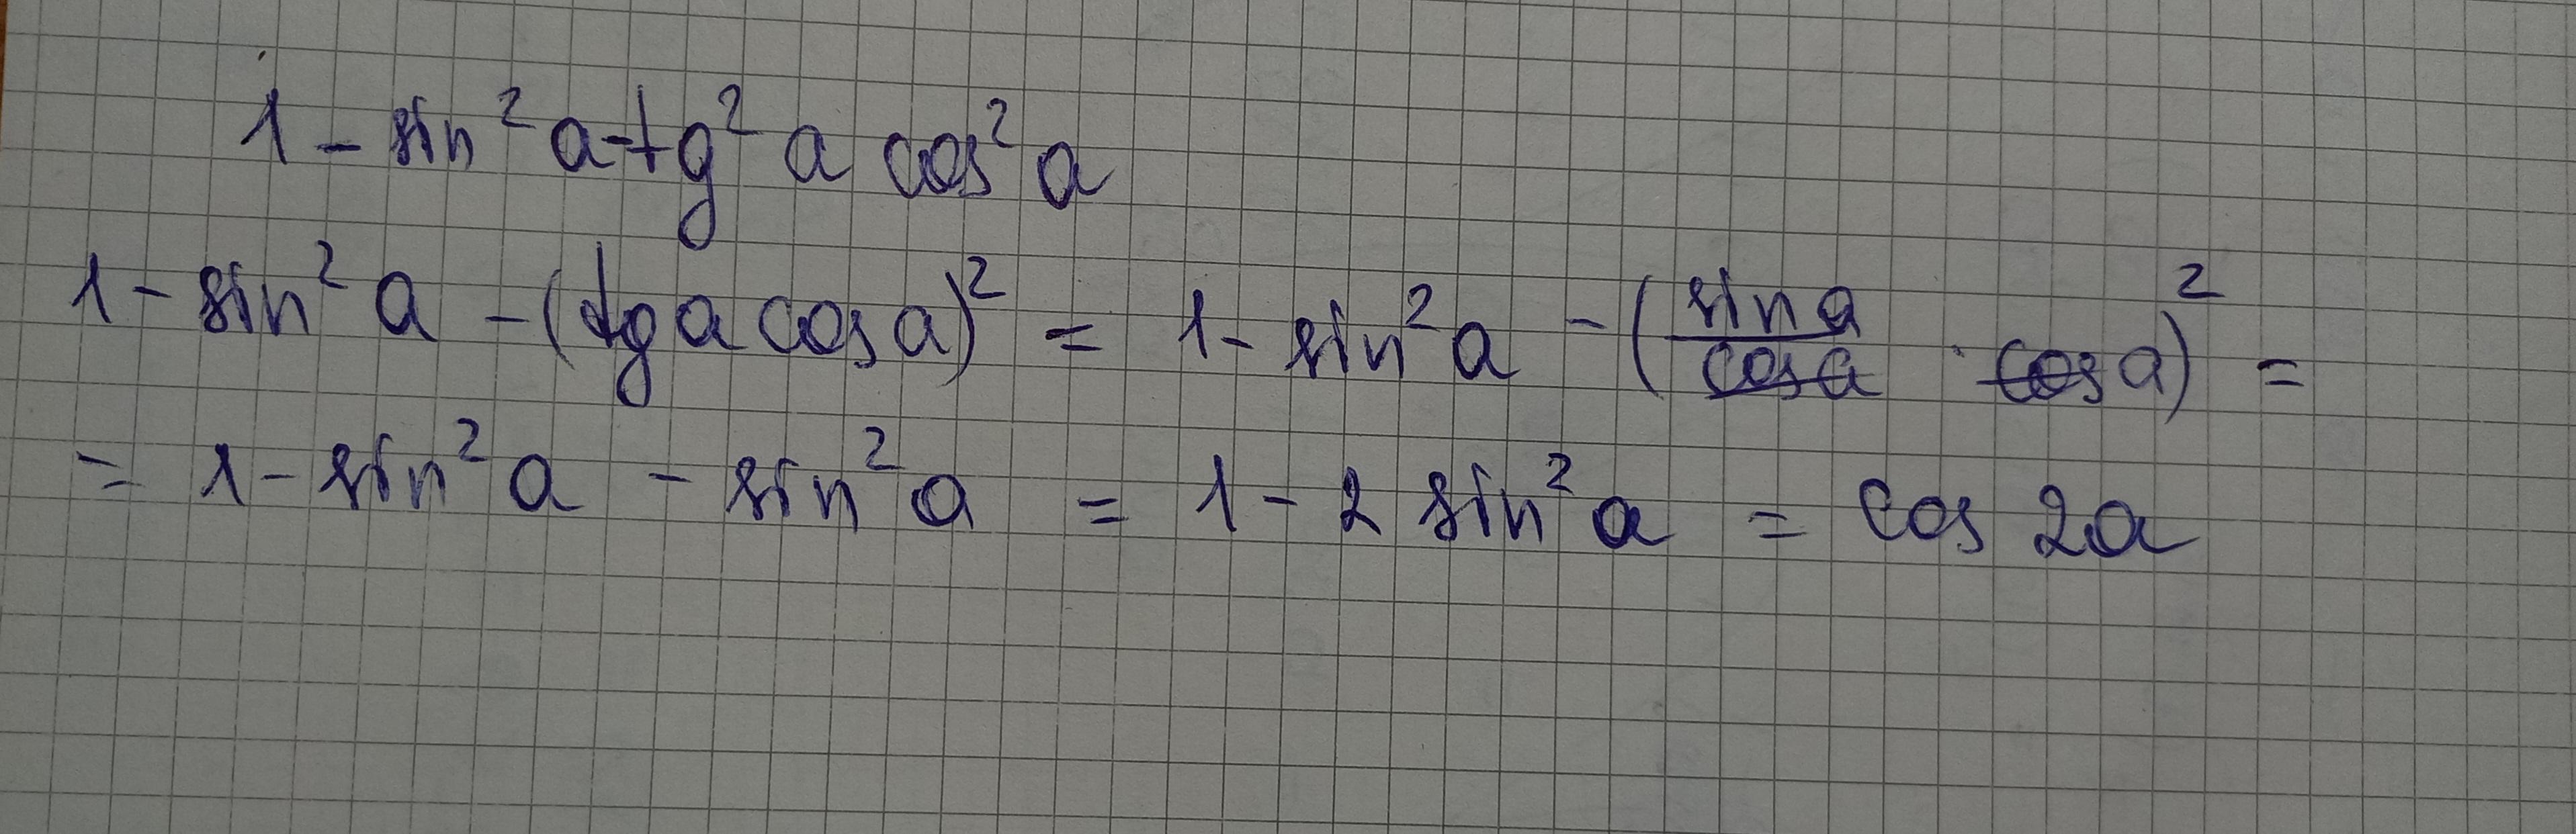 1 - sin² a - tg² a cos² a
1 - sin² a - (tg a cos a)² = 1 - sin² a - (sin a / cos a · cos a)² =
= 1 - sin² a - sin² a = 1 - 2 sin² a = cos 2a